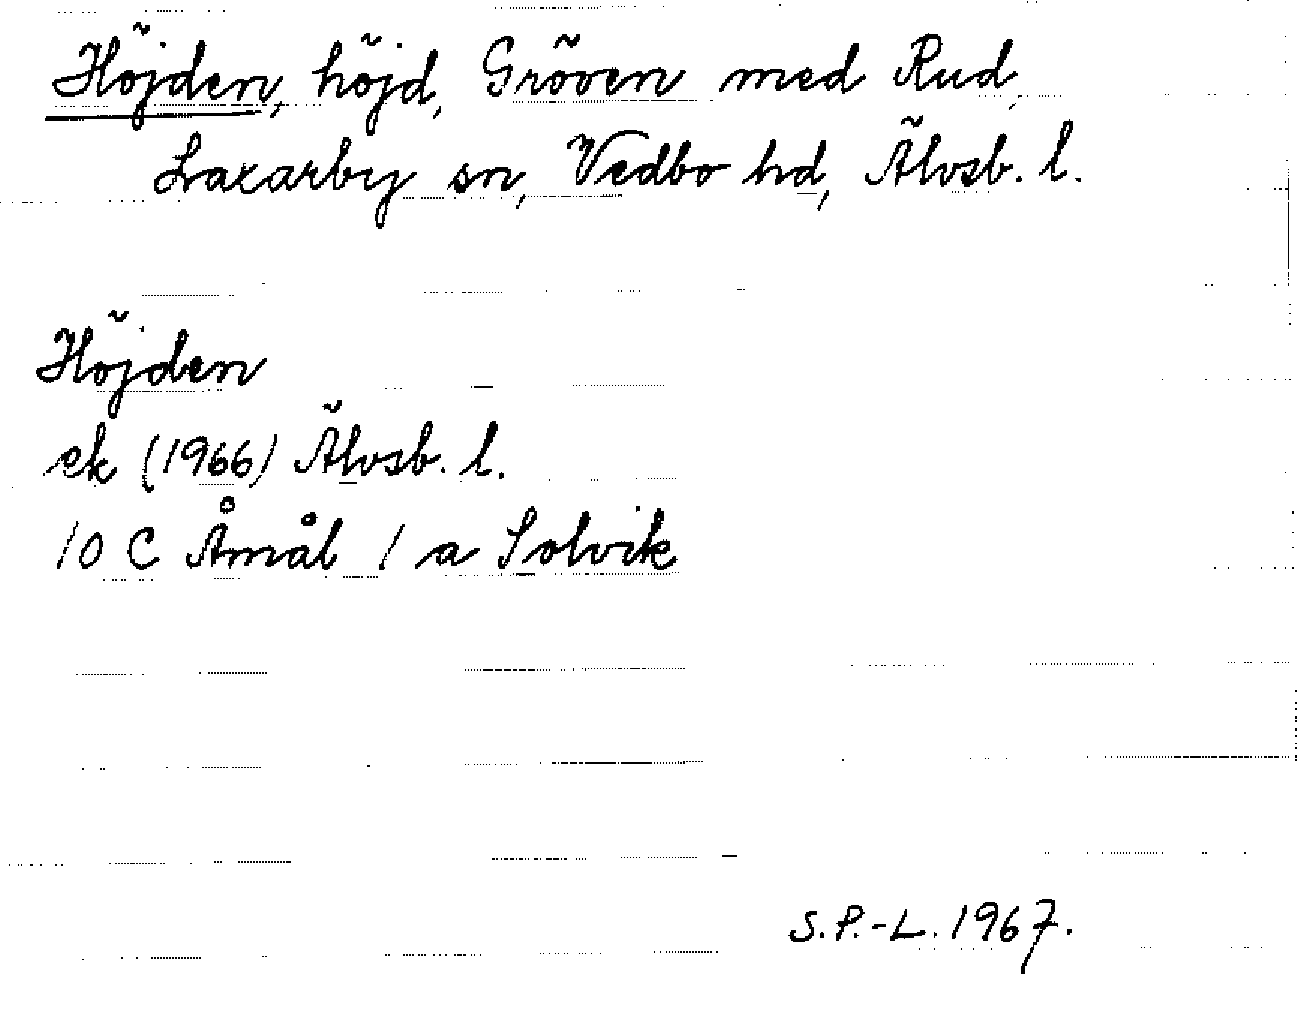 Höjden, höjd, Gröven med Rud,
Laxarby sn, Vedbo hd, Älvsb. l.
Höjden
ek (1966) Älvsb. l.
10 C Åmål 1 a Solvik
S.P.-L. 1967.